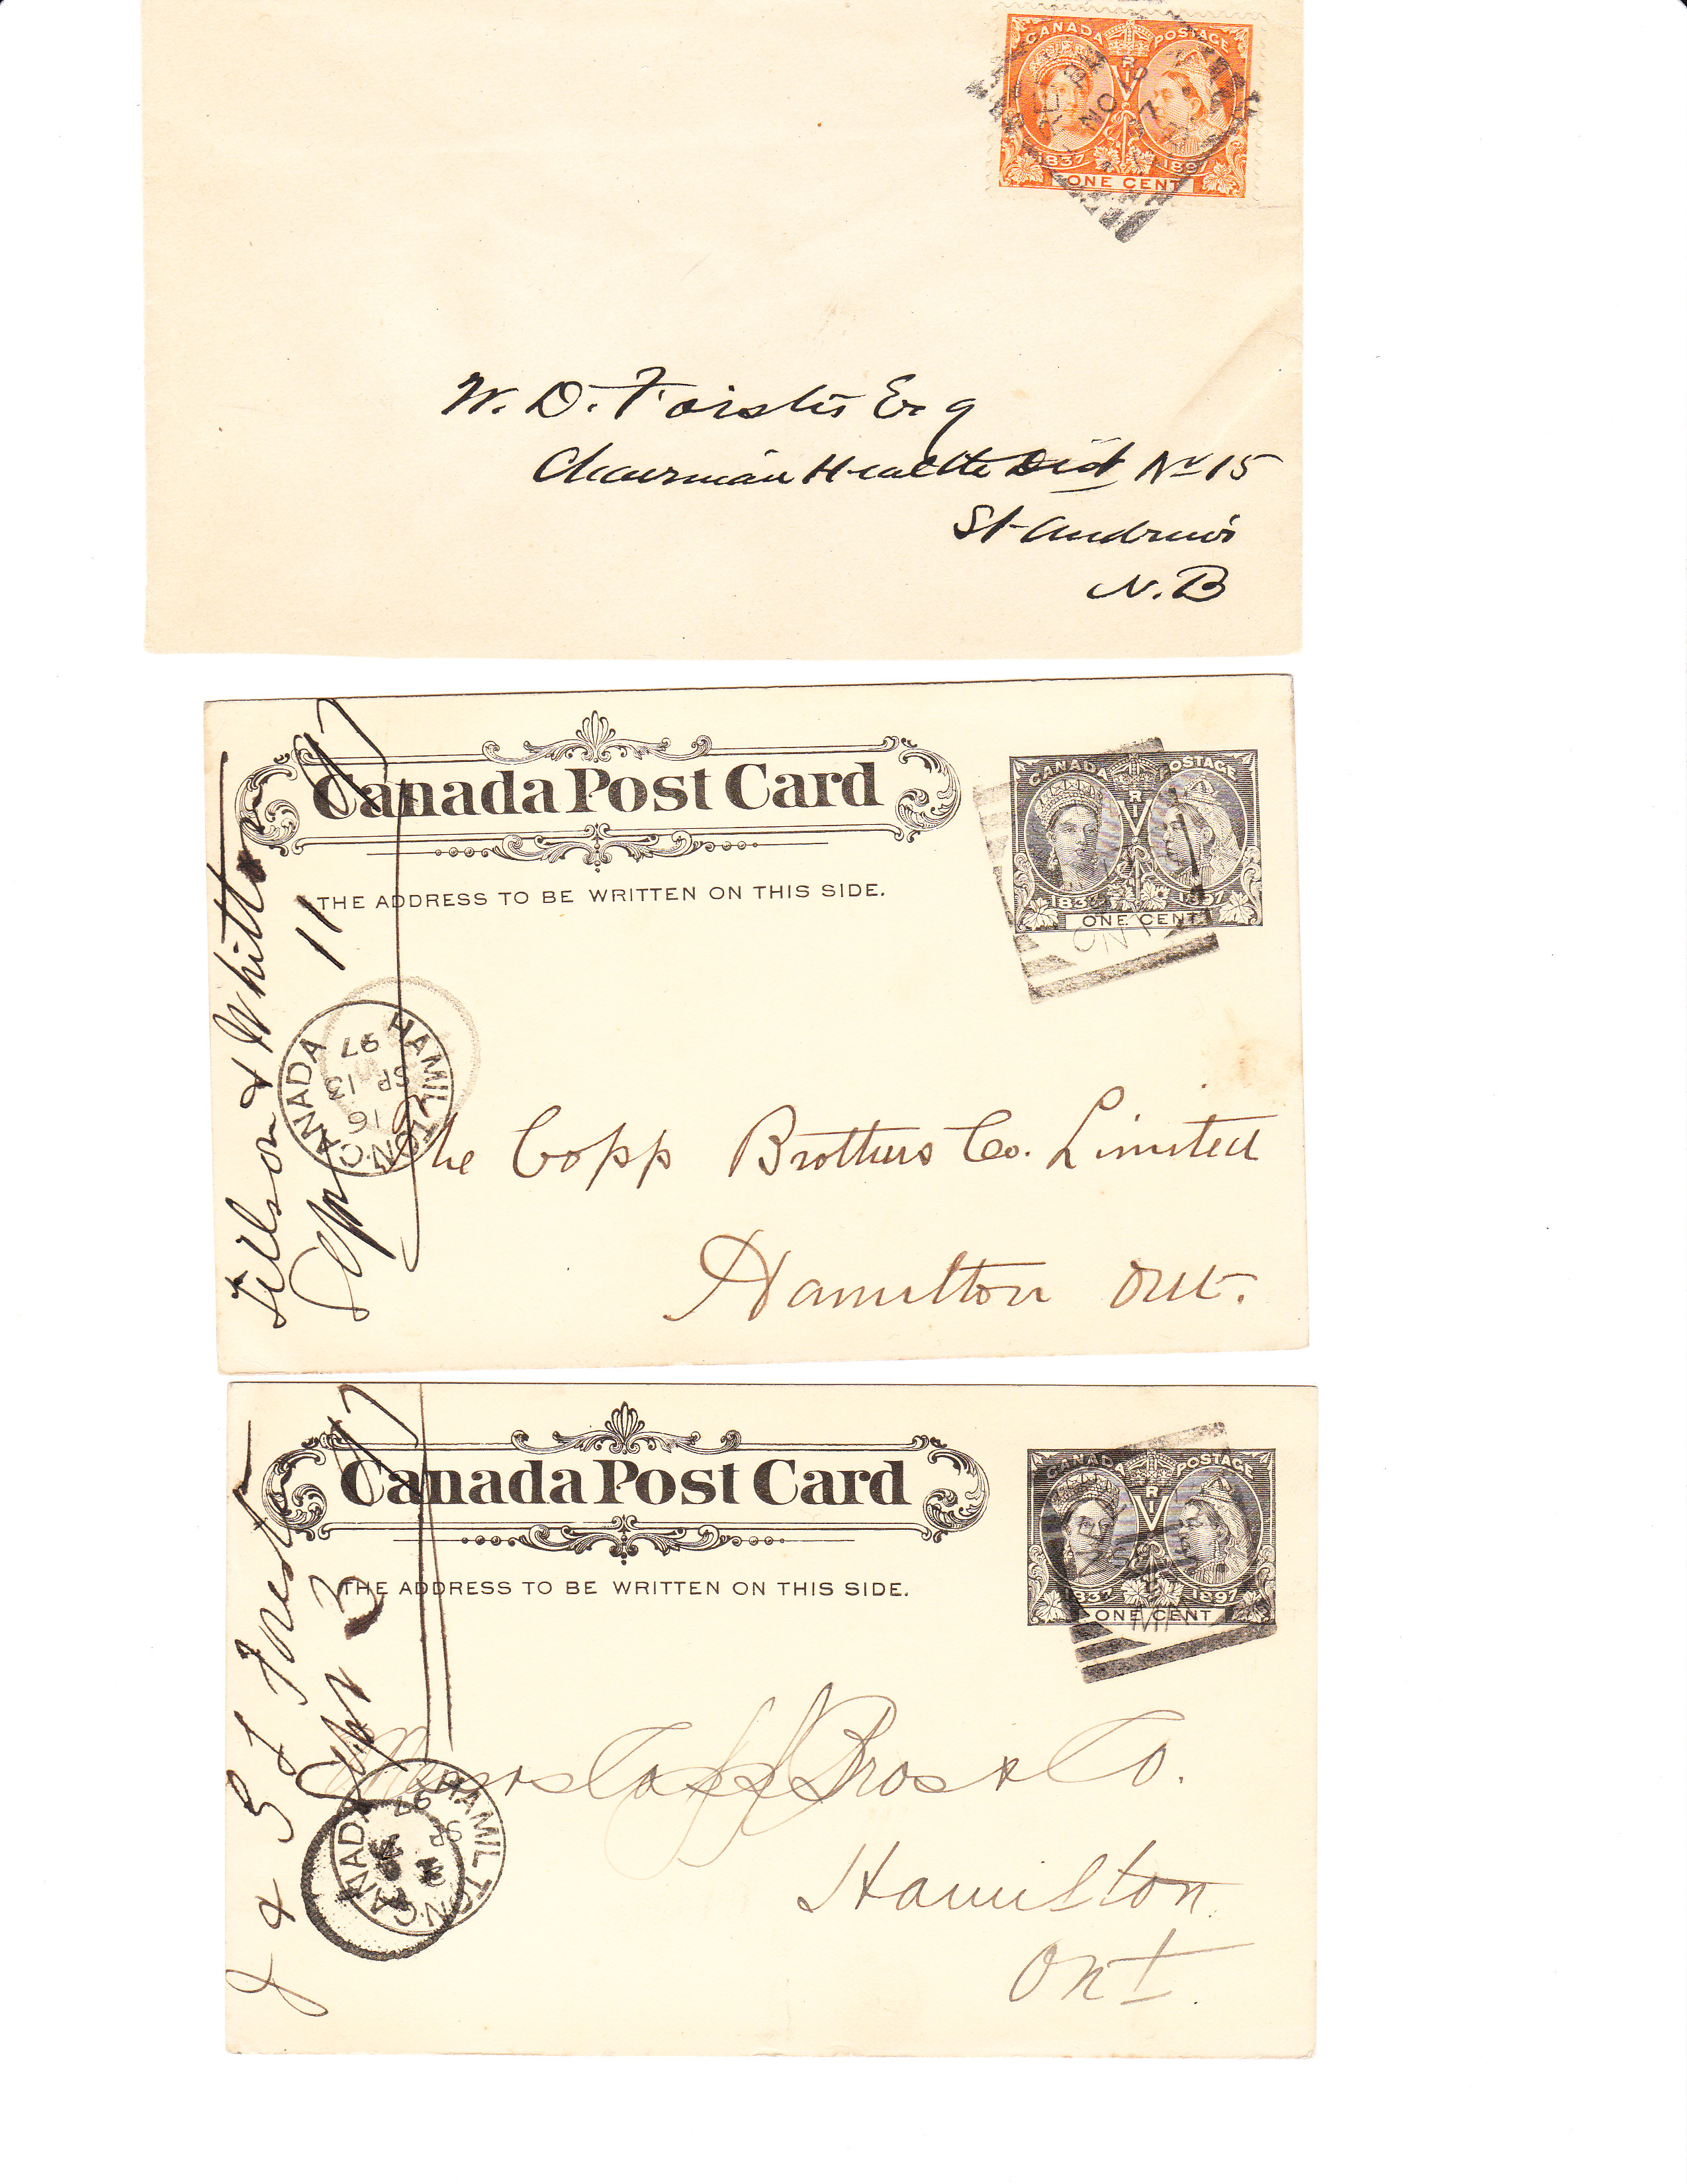 CANADA POSTAGE
V R I
1837 1897
ONE CENT
NO
97
W. D. Forster Esq
Chairman Health Dist No 15
St Andrews
N. B
Canada Post Card
CANADA POSTAGE
V R I
1837 1897
ONE CENT
ONT
THE ADDRESS TO BE WRITTEN ON THIS SIDE.
Tillson & Whitton
Sept 11 97
HAMILTON. CANADA
16
SP 13
97
The Copp Brothers Co. Limited
Hamilton Ont.
Canada Post Card
CANADA POSTAGE
V R I
1837 1897
ONE CENT
MAN
THE ADDRESS TO BE WRITTEN ON THIS SIDE.
Sept 3 97
HAMILTON. CANADA
SP
97
Messrs Copp Bros & Co.
Hamilton
Ont.